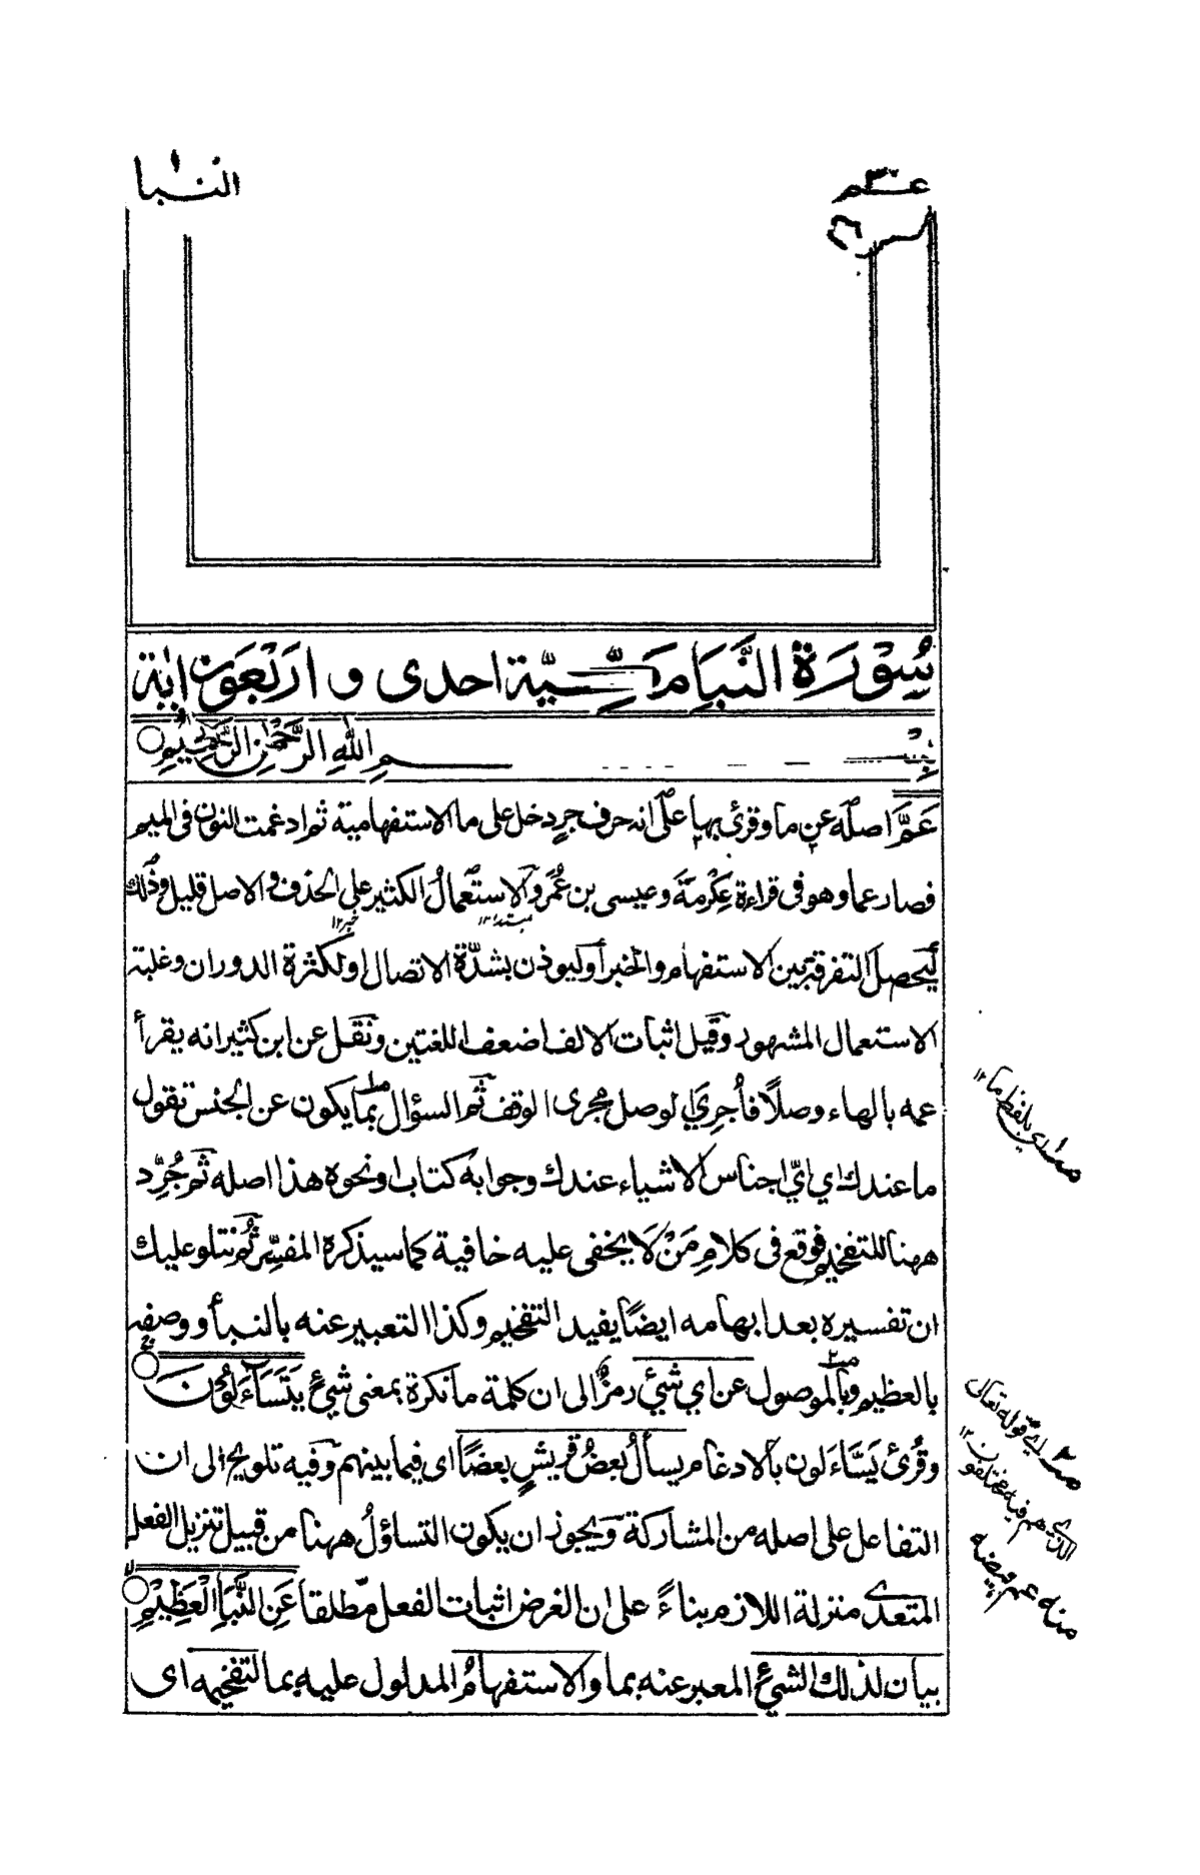 عـم ٣٠
النبا
سُوْرَةُ النَّبَإِ مَكِّيَّةٌ احدى و اربَعَون اٰية
بِسْمِ اللّٰهِ الرَّحْمٰنِ الرَّحِيْمِ
عَمَّ اصله عن ما وقرئ بها على انه حرف جرٍ دخل على ما الاستفهامية ثم ادغمت النون فى الميم
فصار عما وهو فى قراءة عِكْرمَة وعيسى بن عُمَر والاستعمالُ الكثير على الحذف والاصل قليل وذلك
مبتدا ١٢
خبر ١٢
ليحصل التفرقة بين الاستفهام والخبر أو ليوذن بشدّة الاتصال او لكثرة الدوران وغلبة
الاستعمال المشهور وقيل اثبات الالف اضعف اللغتين ونقل عن ابن كثير انه يقرأ
عمه بالهاء وصلًا فأُجرِيَ الوصل مجرى الوقف ثم السؤال بما يكون عن الجنس تقول
ما عندك اي ايّ اجناس الاشياء عندك وجوابه كتاب او نحوه هذا اصله ثم جُرِّد
ههنا للتفخيم فوقع فى كلامِ مَنْ لَا يخفى عليه خافية كما سيذكرة المفسِّر ثم نتلو عليك
ان تفسيره بعد ابهامه ايضًا يفيد التفخيم وكذا التعبير عنه بالنبأ ووصفه
بالعظيم وبالموصول عن اي شيْءٍ رمزٌ الى ان كلمة ما نكرة بمعنى شيْءٍ يَتَسَآءَلُوْنَ
وقُرِئ يَسَّاءَلون بالادغام يسألُ بعضُ قريشٍ بعضًا اى فيما بينهم وفيه تلويح الى ان
التفاعل على اصله من المشاركة ويجوز ان يكون التساؤلُ ههنا من قبيل تنزيل الفعل
المتعدي منزلة اللازم بناءً على ان الغرض اثبات الفعل مطلقا عَنِ النَّبَإِ الْعَظِيْمِ
بيان لذلك الشيْءِ المعبر عنه بما والاستفهامُ المدلول عليه بما لتفخيمه اى
اى بلفظ ما ١٢
اى قوله تعالى
الذي هم فيه مختلفون ١٢
منه عم فيضه